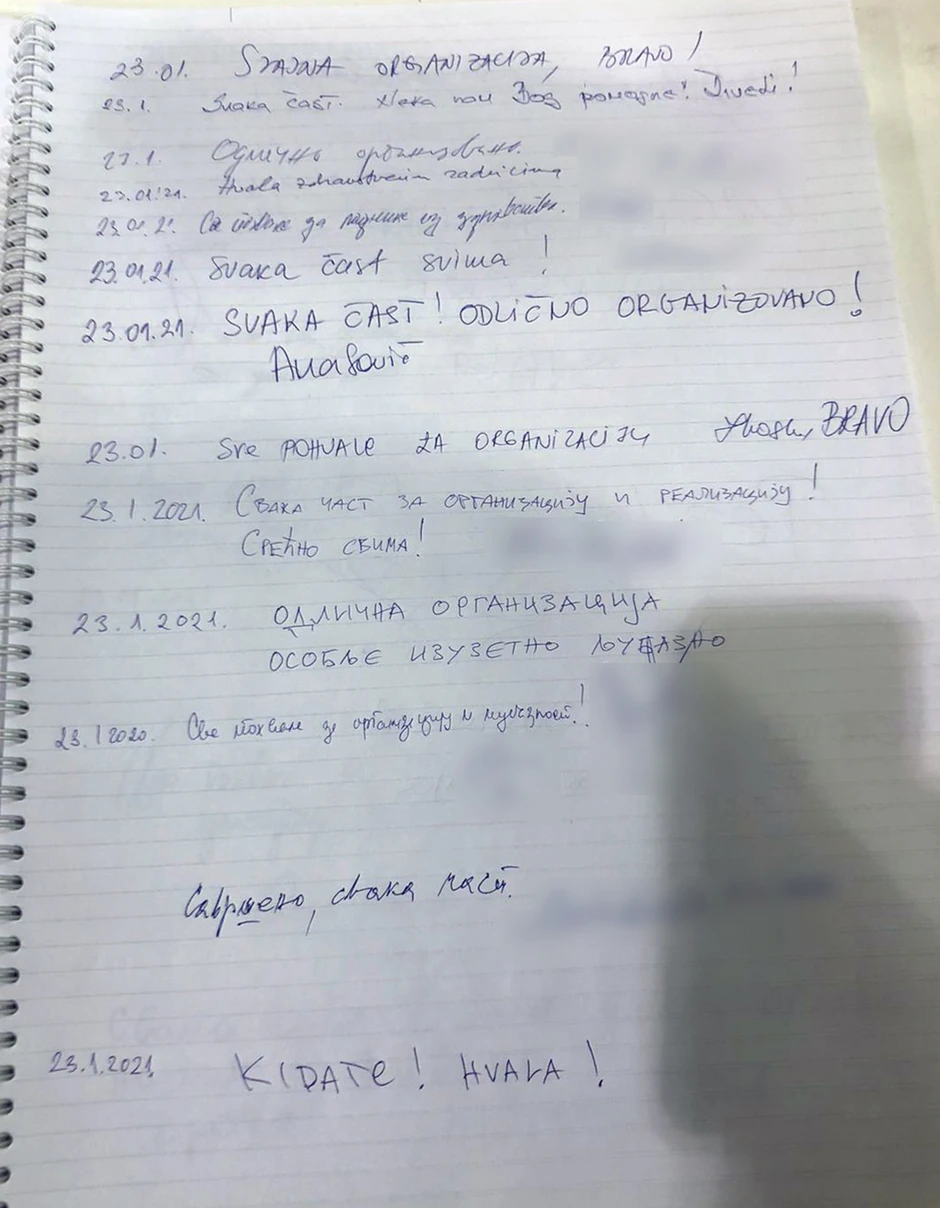 23.01. SJAJNA ORGANIZACIJA, BRAVO!
23.1. Svaka čast. Neka nam Bog pomogne! Živeli!
23.1. Одлично организовано.
23.01.'21. Hvala zdravstvenim radnicima
23.01.21. Са да из
23.01.21. Svaka čast svima!
23.01.21. SVAKA ČAST! ODLIČNO ORGANIZOVANO!
23.01. Sve POHVALE ZA ORGANIZACIJU BRAVO
23.1.2021. СВАКА ЧАСТ ЗА ОРГАНИЗАЦИЈУ И РЕАЛИЗАЦИЈУ!
СРЕЋНО СВИМА!
23.1.2021. ОДЛИЧНА ОРГАНИЗАЦИЈА
ОСОБЉЕ ИЗУЗЕТНО ЉУБАЗНО
23.1 2020. Све похвале за организацију и!
Савршено, свака част.
23.1.2021. KIDATE! HVALA!